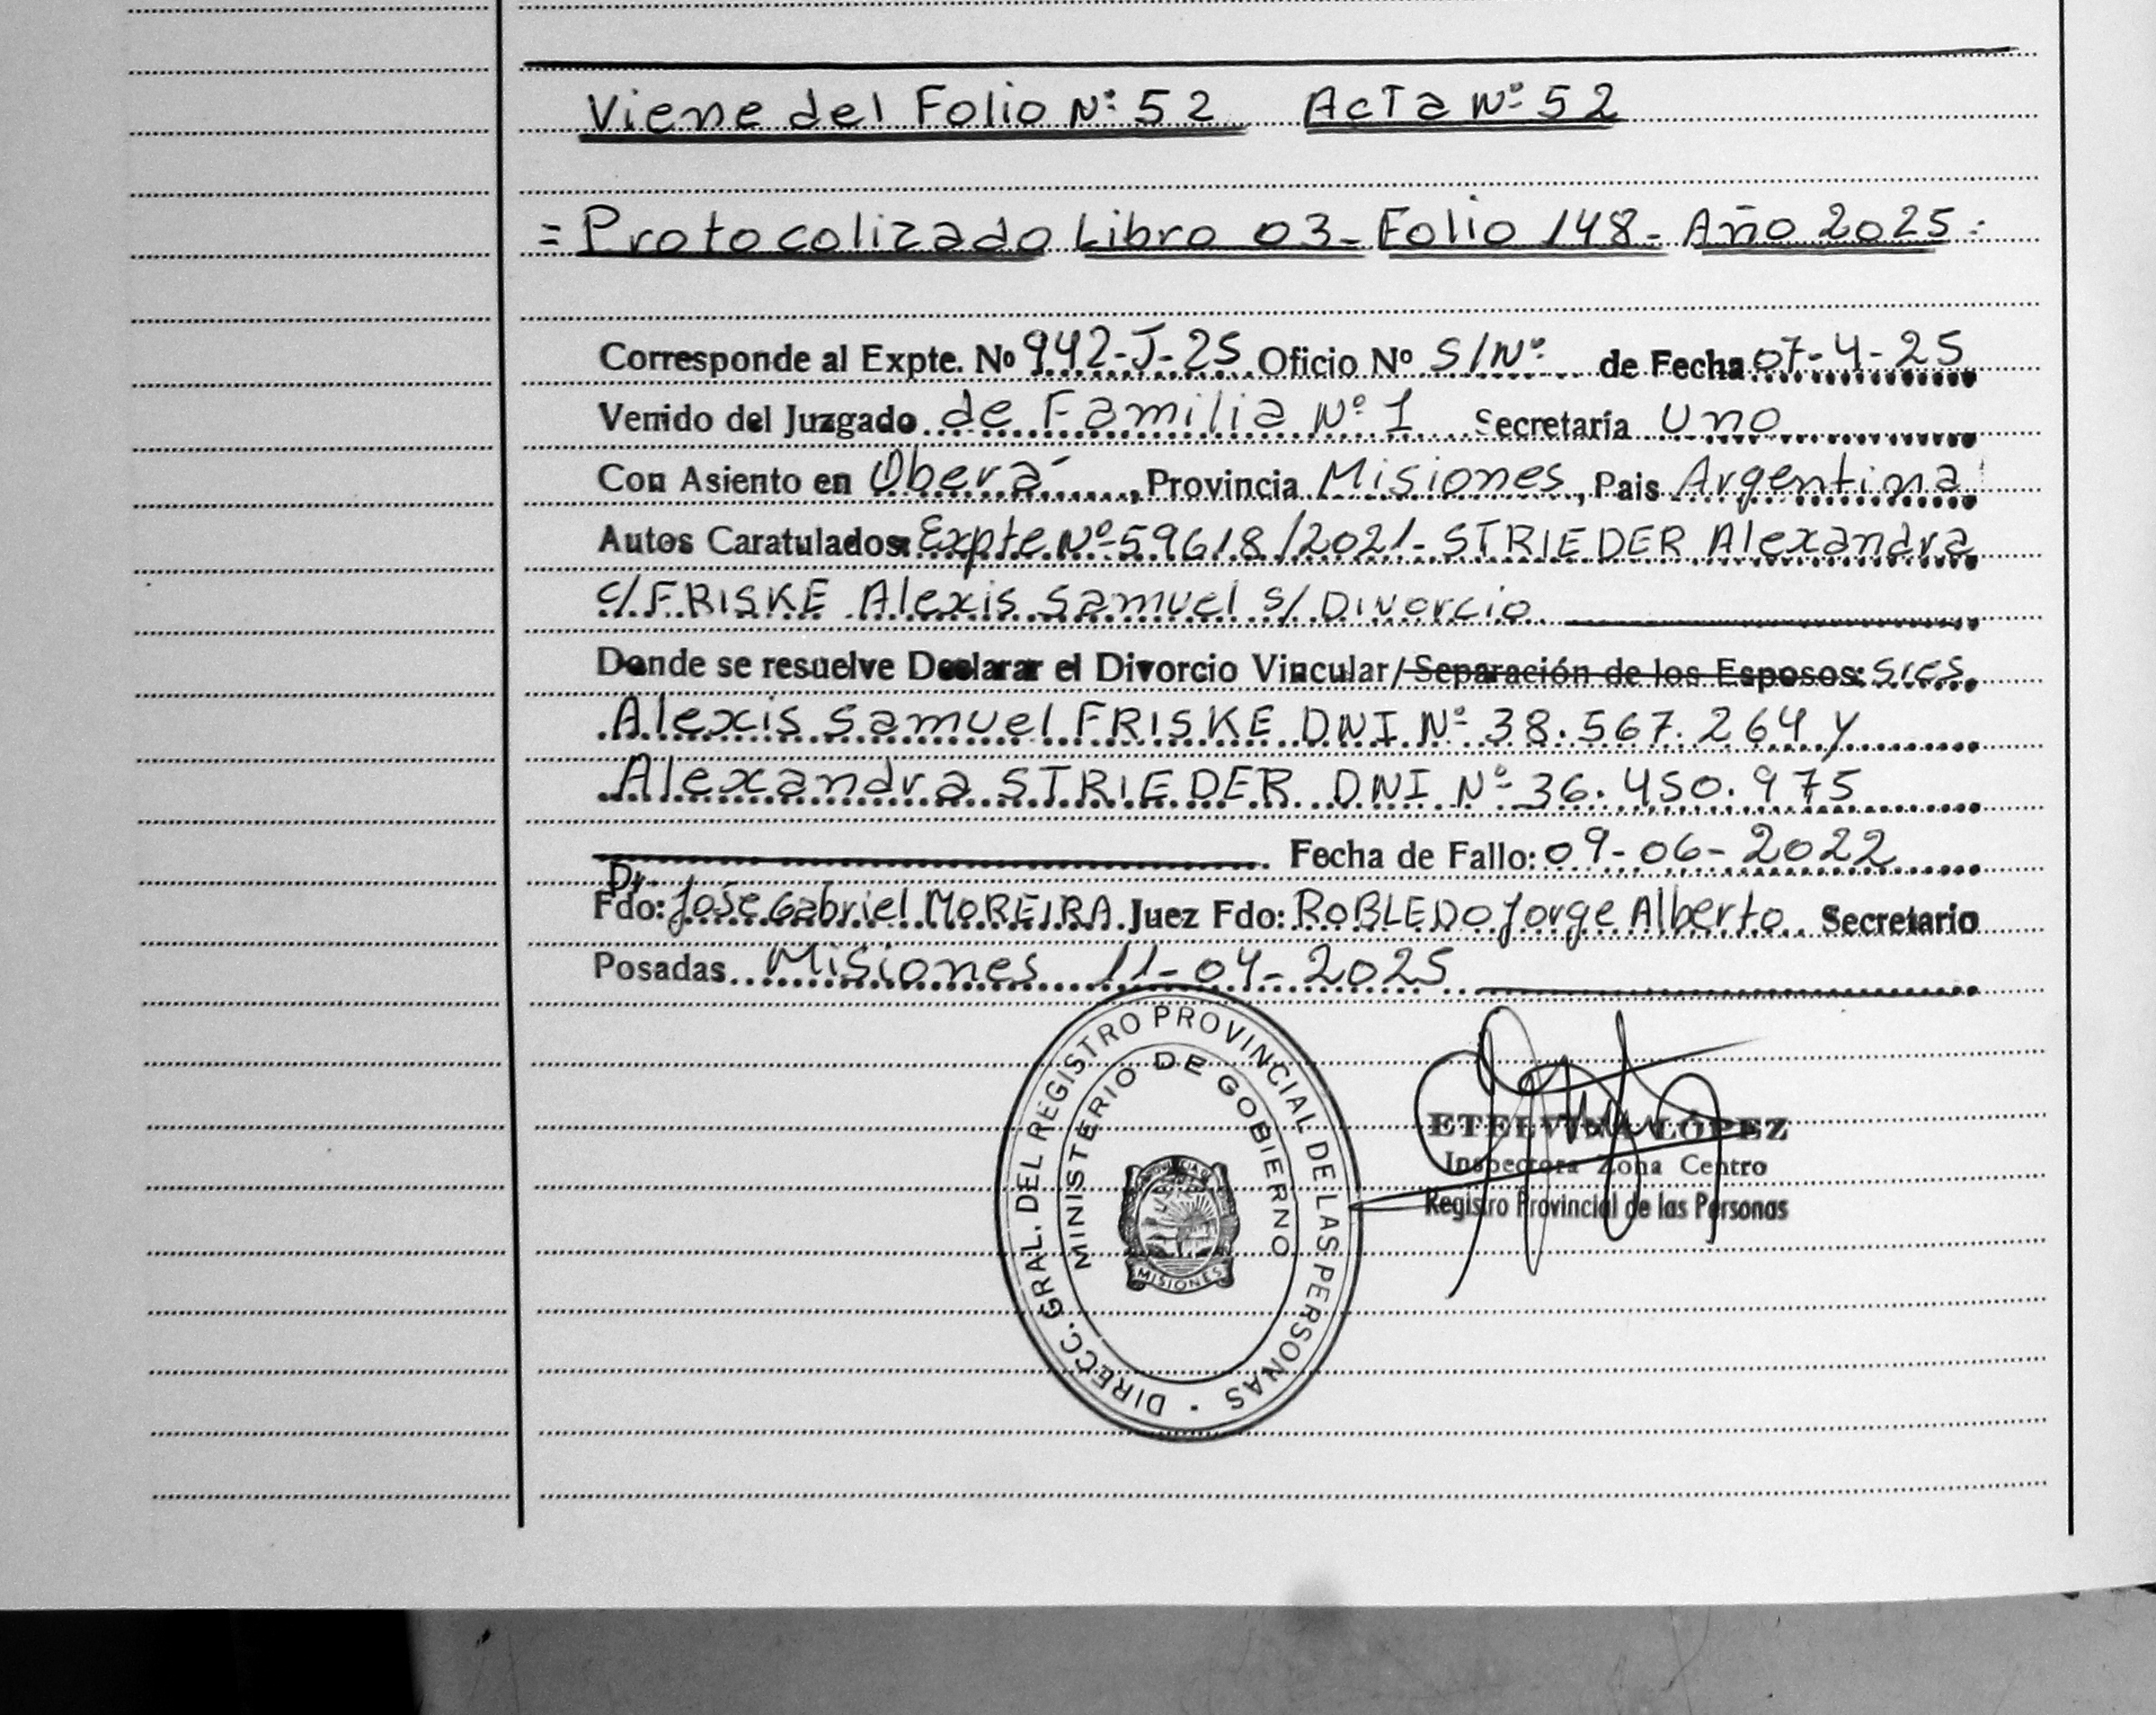 Viene del Folio Nº 52 Acta Nº 52
= Protocolizado Libro 03- Folio 148- Año 2025=
Corresponde al Expte. Nº 942-J-25 Oficio Nº S/Nº de Fecha 07-4-25
Venido del Juzgado de Familia Nº 1 Secretaría Uno
Con Asiento en Oberá, Provincia Misiones, Pais Argentina
Autos Caratulados: Expte Nº 59618/2021- STRIEDER Alexandra
c/ FRISKE Alexis Samuel s/ Divorcio
Donde se resuelve Declarar el Divorcio Vincular/Separación de los Esposos: sres.
Alexis Samuel FRISKE DNI Nº 38.567.264 y
Alexandra STRIEDER DNI Nº 36.450.975
Fecha de Fallo: 09-06-2022
Dr.
Fdo: José Gabriel MOREIRA. Juez Fdo: ROBLEDO Jorge Alberto. Secretario
Posadas Misiones 11-04-2025
DIRECC. GRAL. DEL REGISTRO PROVINCIAL DE LAS PERSONAS
MINISTERIO DE GOBIERNO
MISIONES
ETELVINA LÓPEZ
Inspectora Zona Centro
Registro Provincial de las Personas